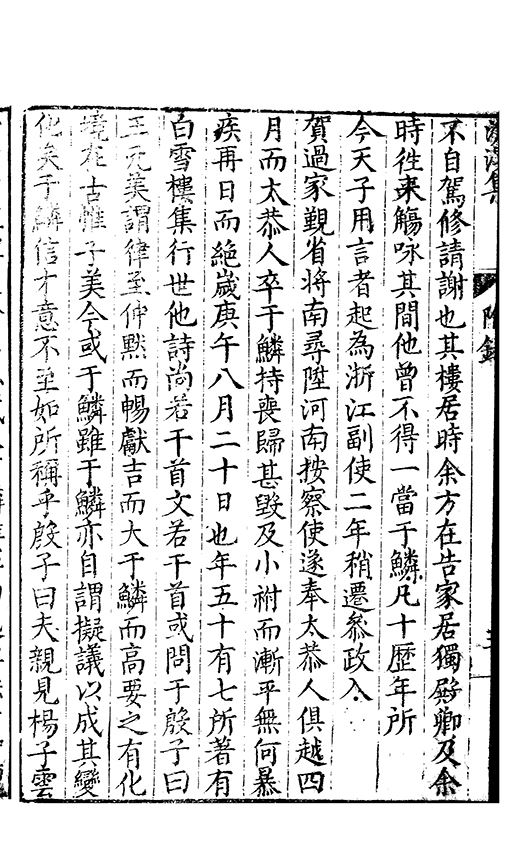 滄溟集
附錄
不自駕修請謝也其樓居時余方在告家居獨殿卿及余
時徃來觴咏其間他曾不得一當于鱗凡十歷年所
今天子用言者起為浙江副使二年稍遷叅政入
賀過家覲省將南尋陞河南按察使遂奉太恭人俱越四
月而太恭人卒于鱗持喪歸甚毀及小祔而漸平無何暴
疾再日而絕歲庚午八月二十日也年五十有七所著有
白雪樓集行世他詩尚若干首文若干首或問于殷子曰
王元美謂律至仲默而暢獻吉而大于鱗而高要之有化
境在古惟子美今或于鱗雖于鱗亦自謂擬議以成其變
化矣于鱗信才意不至如所稱乎殷子曰夫親見楊子雲